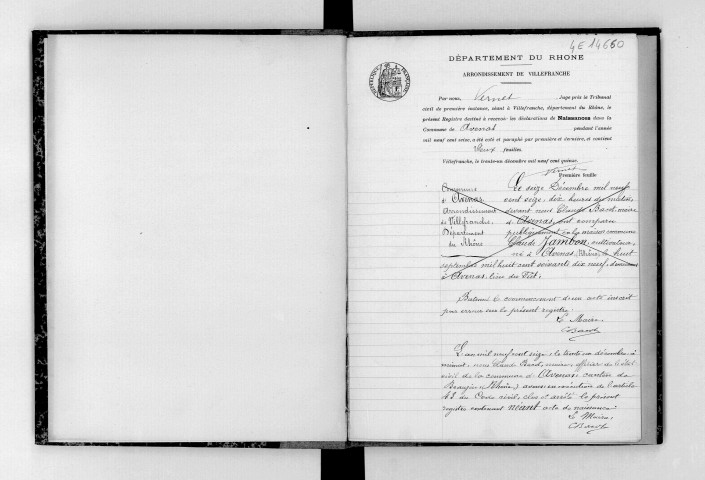 4E 14660
DÉPARTEMENT DU RHONE
ARRONDISSEMENT DE VILLEFRANCHE
Par nous, Vernet Juge près le Tribunal
civil de première instance, séant à Villefranche, département du Rhône, le
présent Registre destiné à recevoir les déclarations de Naissances dans la
Commune de Avenas pendant l'année
mil neuf cent seize, a été coté et paraphé par première et dernière, et contient
Deux feuilles.
Villefranche, le trente-un décembre mil neuf cent quinze.
Vernet
Première feuille
Commune
d'Avenas
Arrondissement
de Villefranche
Département
du Rhône
Le seize Décembre mil neuf
cent seize, dix heures du matin,
devant nous Claude Bard, maire
d'Avenas, ont comparu
publiquement en la maison commune
Claude Jambon, cultivateur,
né à Avenas, (Rhône), le huit
septembre mil huit cent soixante dix neuf, domicilié
à Avenas, lieu du
Bâtonné le commencement d'un acte inscrit
par erreur sur le présent registre.
Le Maire,
CBard
L'an mil neuf cent seize, le trente un décembre à
minuit, nous Claude Bard, maire, officier de l'état
civil de la commune d'Avenas, canton de
Beaujeu (Rhône) avons en exécution de l'article
43 du Code civil, clos et arrêté le présent
registre contenant néant acte de naissance.
Le Maire,
CBard